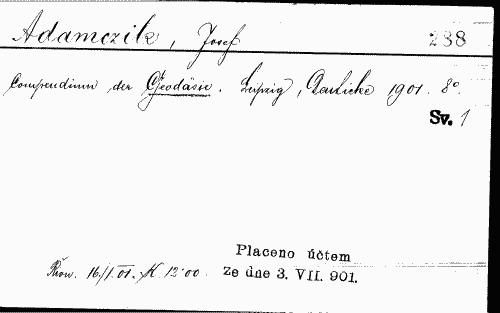 Adamczik, Josef 288
Compendium der Geodäsie. Leipzig, Deuticke 1901. 8°.
Sv. 1
Placeno účtem
16/I. 01. K 12·00 ze dne 3. VII. 901.